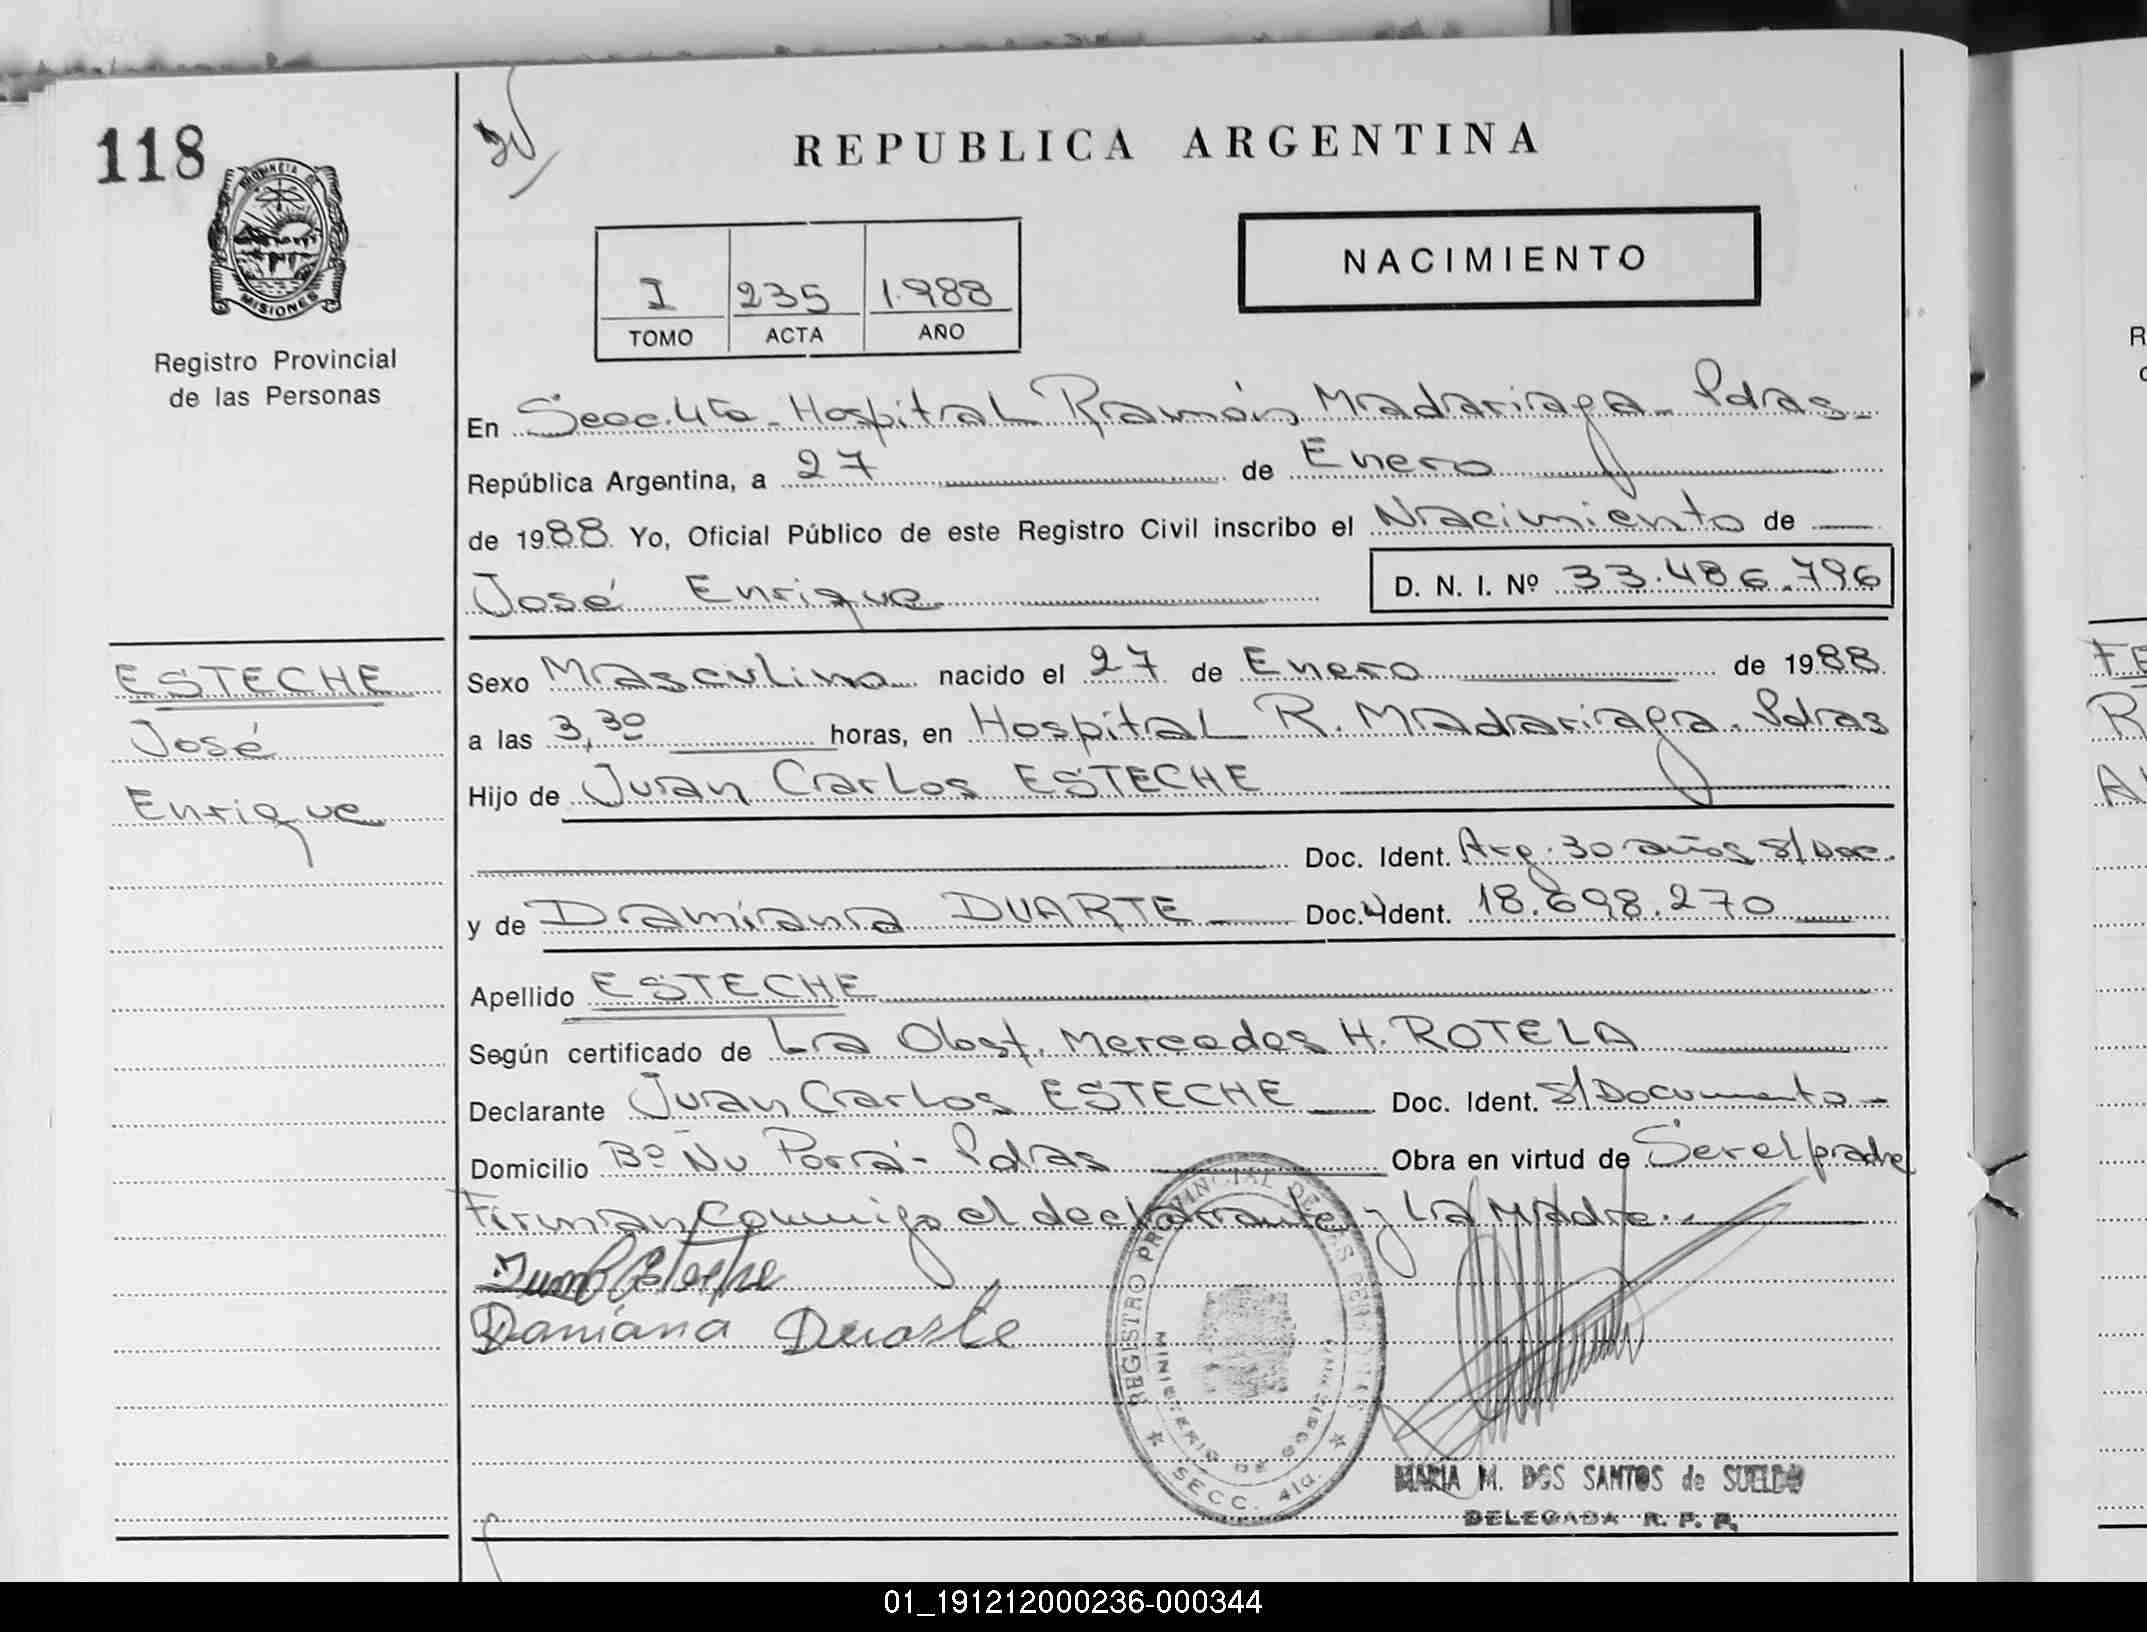 118
REPUBLICA ARGENTINA
PROVINCIA DE
MISIONES
Registro Provincial
de las Personas
NACIMIENTO
I 235 1.988
TOMO ACTA AÑO
En Secc. 4ta. Hospital Ramón Madariaga - Pdas -
República Argentina, a 27 de Enero
de 1988 Yo, Oficial Público de este Registro Civil inscribo el Nacimiento de
José Enrique D. N. I. Nº 33.486.796
ESTECHE
José
Enrique
Sexo Masculino nacido el 27 de Enero de 1988
a las 3,30 horas, en Hospital R. Madariaga. Pdas
Hijo de Juan Carlos ESTECHE
Doc. Ident. Arg. 30 años s/Doc.
y de Damiana DUARTE Doc. Ident. 18.698.270
Apellido ESTECHE
Según certificado de La Obst. Mercedes H. ROTELA
Declarante Juan Carlos ESTECHE Doc. Ident. s/Documento -
Domicilio Bº Ñu Porá - Pdas Obra en virtud de Ser el padre
Firman conmigo el declarante y La Madre.-
Juan C Esteche
Damiana Duarte
REGISTRO PROVINCIAL DE LAS PERSONAS
MINISTERIO DE GOBIERNO
SECC. 4ta.
MARIA M. DOS SANTOS de SUELDO
DELEGADA R. P. P.
R
F
R
A
01_191212000236-000344